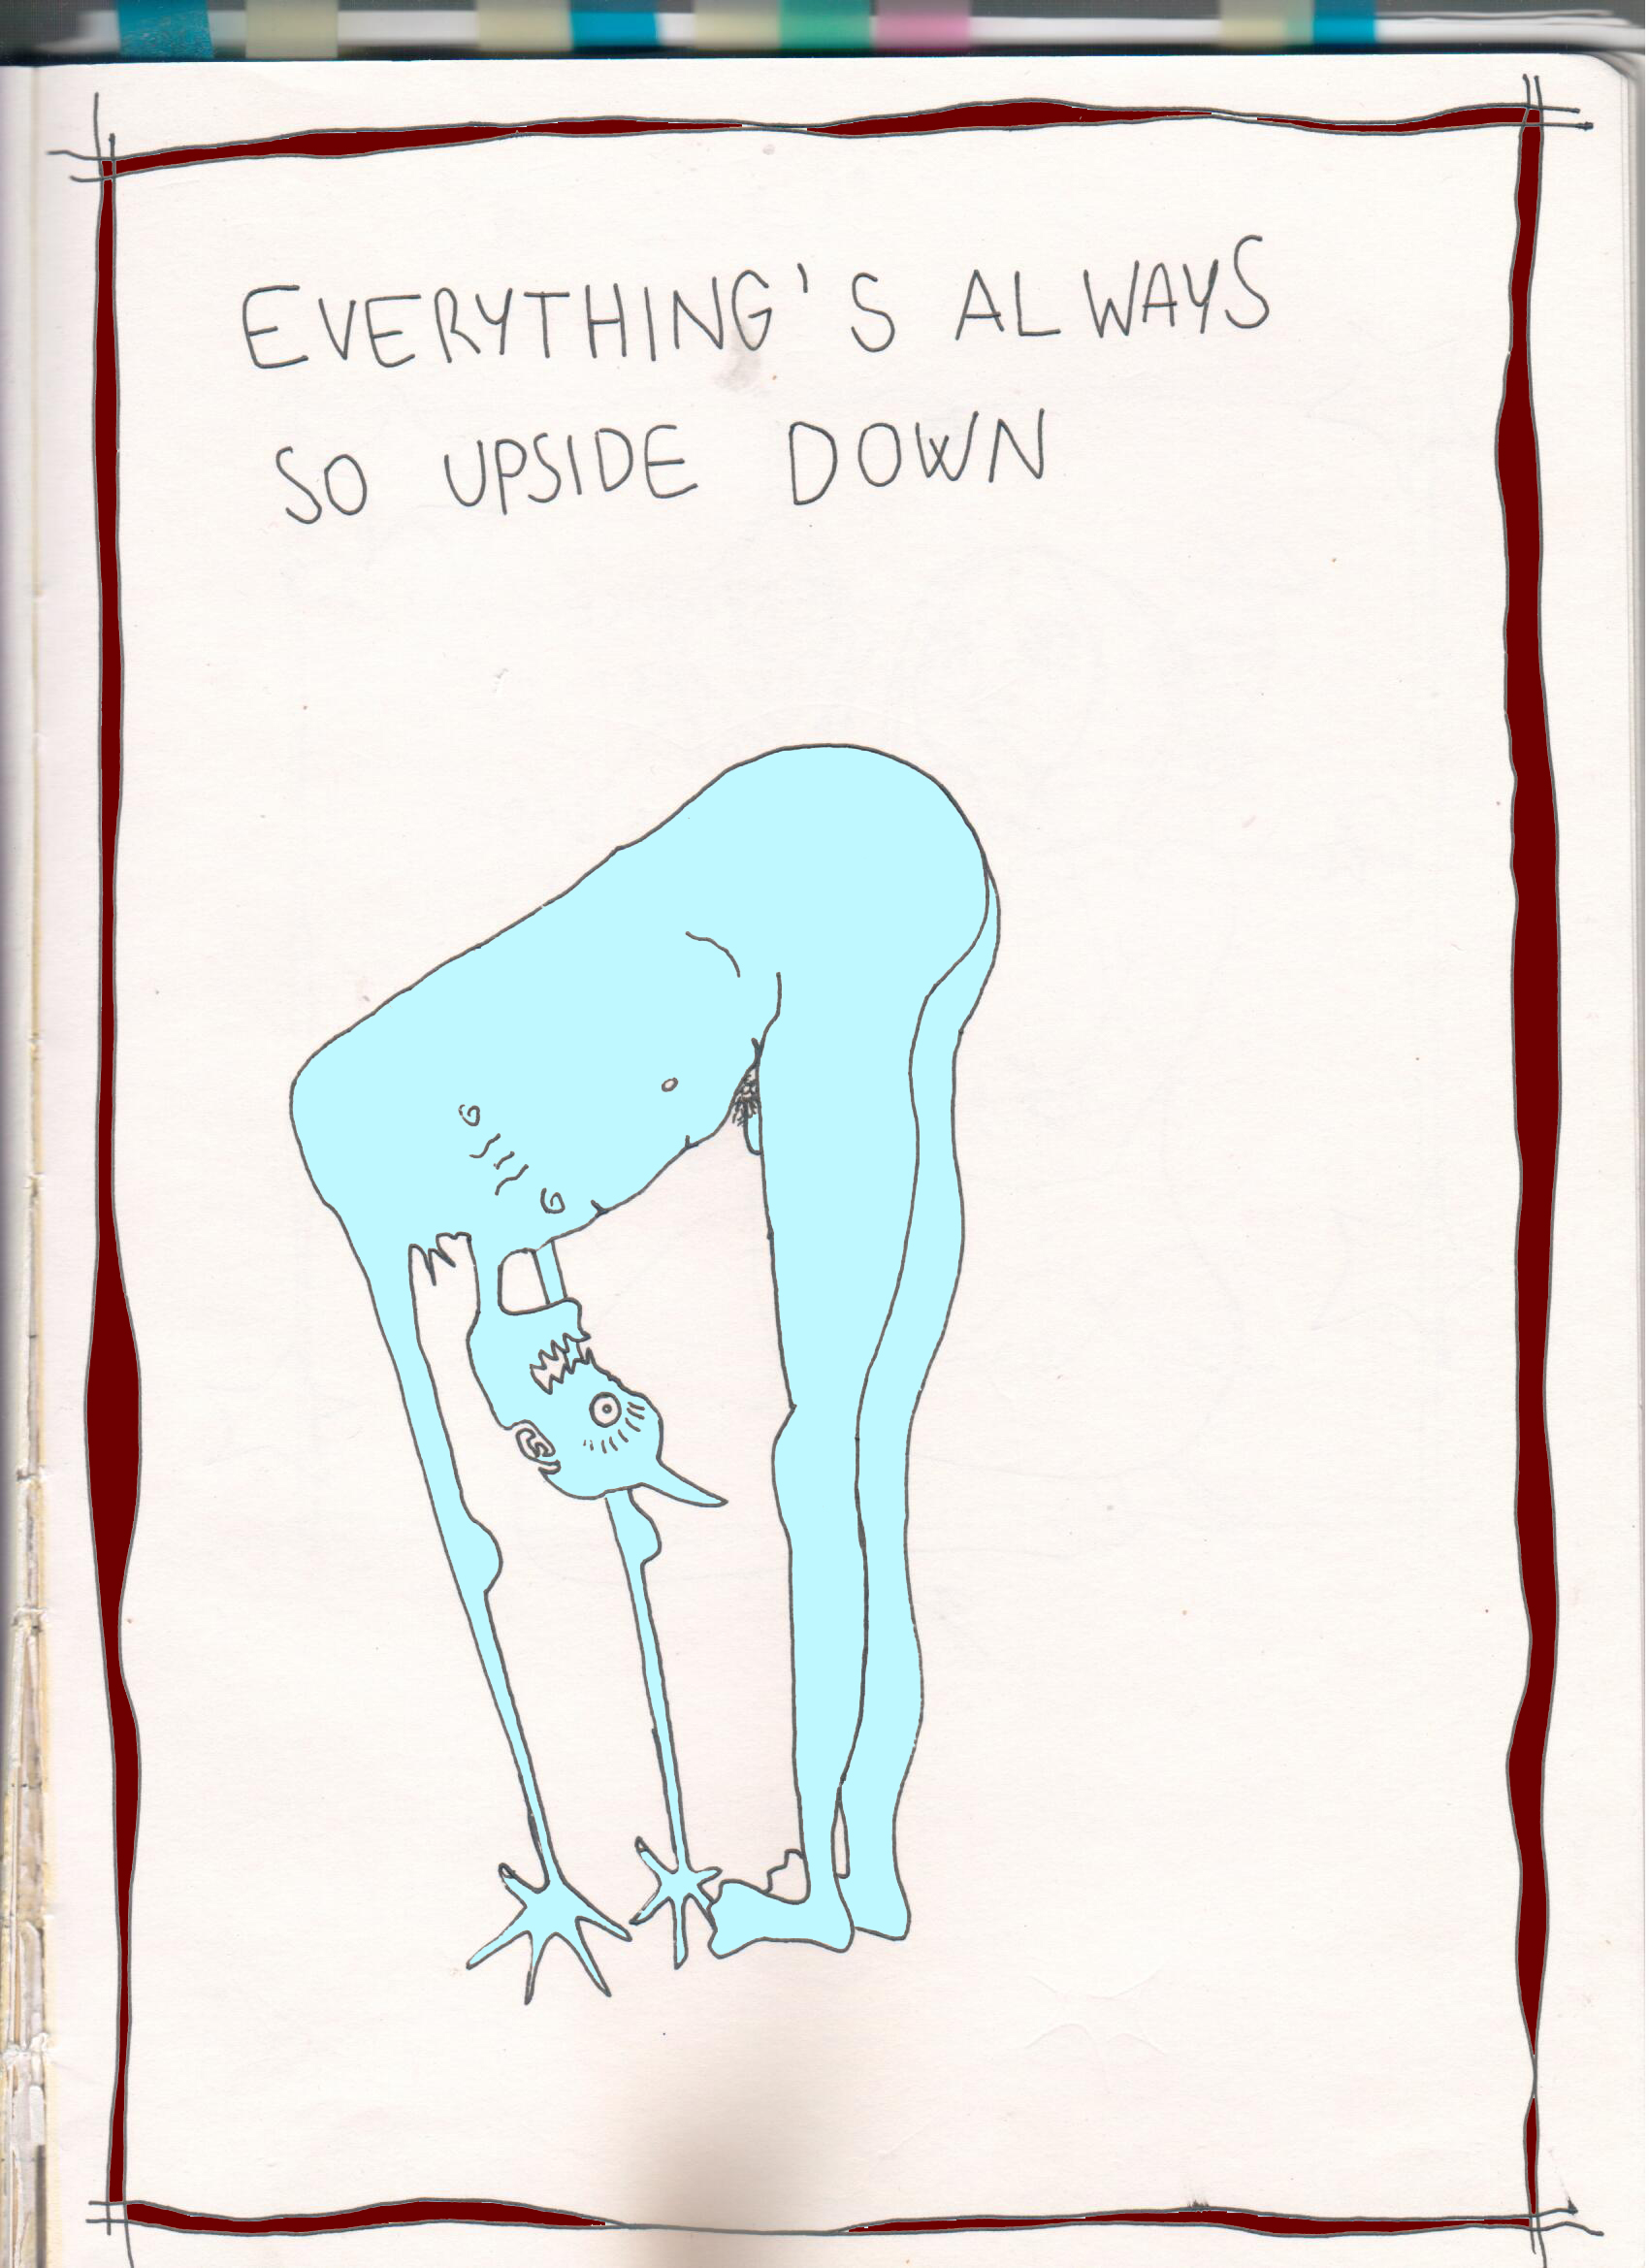 EVERYTHING'S ALWAYS
SO UPSIDE DOWN